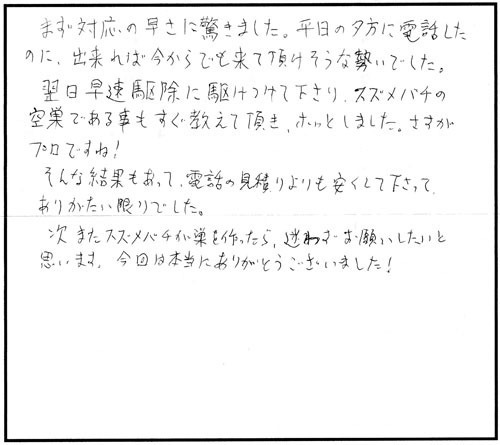 まず対応の早さに驚きました。平日の夕方に電話した
のに、出来れば今からでも来て頂けそうな勢いでした。
翌日早速駆除に駆けつけて下さり、スズメバチの
空巣である事もすぐ教えて頂き、ホッとしました。さすが
プロですね!
そんな結果もあって、電話の見積りよりも安くして下さって、
ありがたい限りでした。
次またスズメバチが巣を作ったら、迷わずお願いしたいと
思います。今回は本当にありがとうございました!